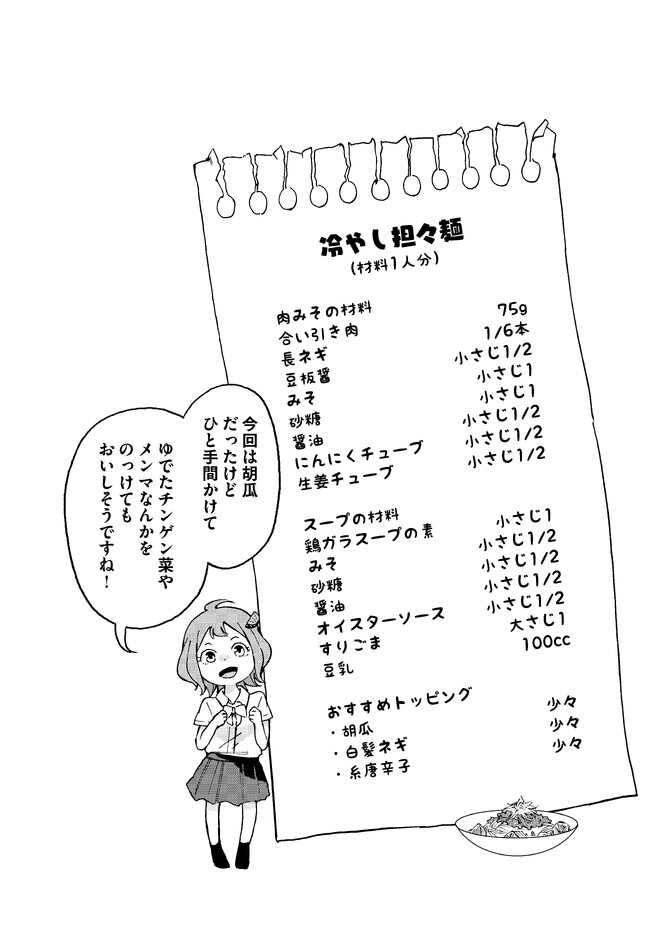 冷やし担々麺
(材料1人分)
肉みその材料
合い引き肉 75g
長ネギ 1/6本
豆板醤 小さじ1/2
みそ 小さじ1
砂糖 小さじ1
醤油 小さじ1/2
にんにくチューブ 小さじ1/2
生姜チューブ 小さじ1/2
スープの材料
鶏ガラスープの素 小さじ1
みそ 小さじ1/2
砂糖 小さじ1/2
醤油 小さじ1/2
オイスターソース 小さじ1/2
すりごま 大さじ1
豆乳 100cc
おすすめトッピング
・胡瓜 少々
・白髪ネギ 少々
・糸唐辛子 少々
今回は胡瓜
だったけど
ひと手間かけて
ゆでたチンゲン菜や
メンマなんかを
のっけても
おいしそうですね!